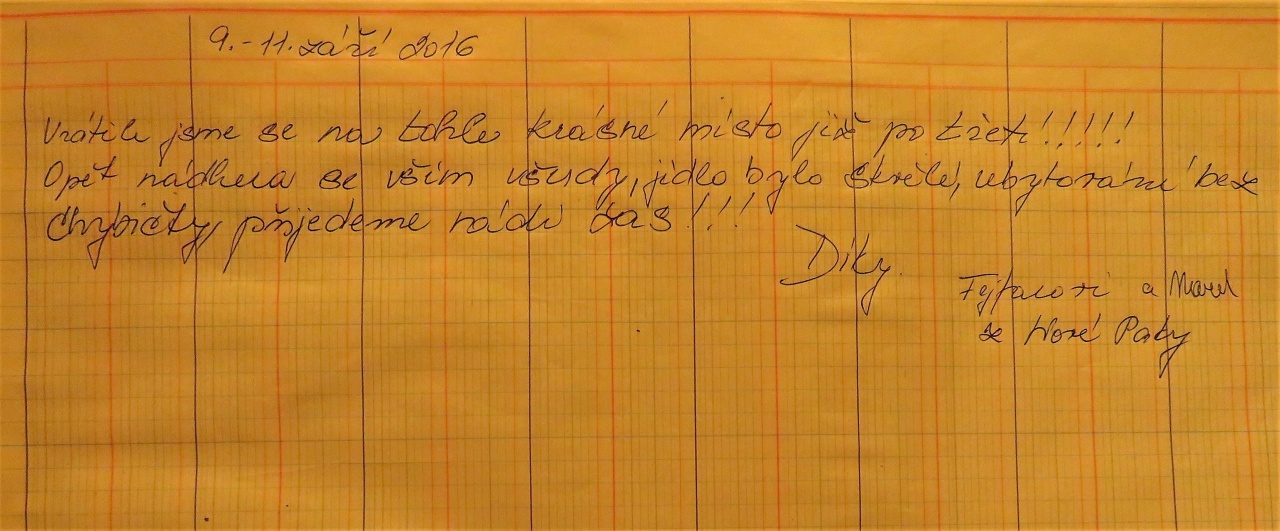 9.-11. září 2016
Vrátili jsme se na tohle krásné místo již po třetí!!!!!
Opět nádhera se vším všudy, jídlo bylo skvělé, ubytování bez
chybičky, přijedeme rádi zas!!!
Díky.
a
ze Nové Paky